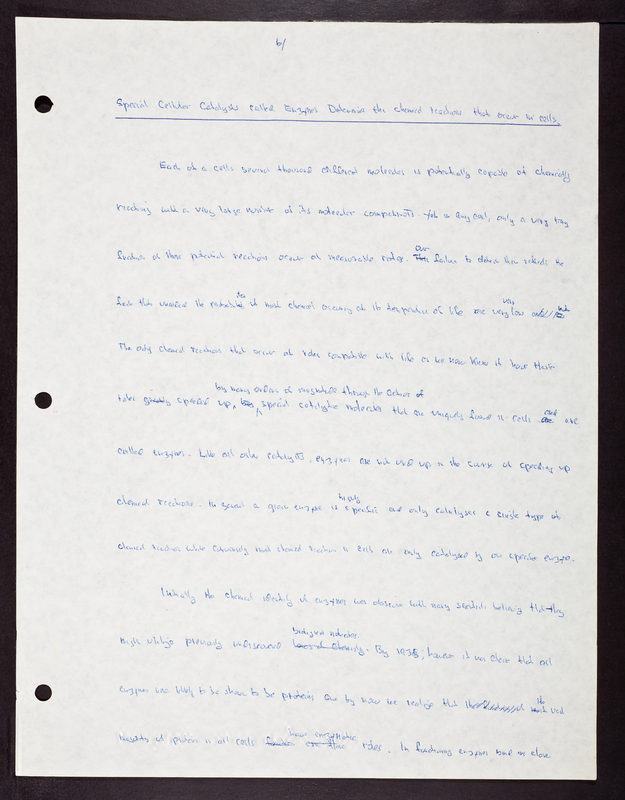 6/
Special Cellular Catalysts called Enzymes Determine the chemical reactions that occur in cells.
Each of a cells several thousand different molecules is potentially capable of chemically
reacting with a very large number of its molecular components. Yet in any cell, only a very tiny
fraction of these potential reactions occur at measurable rates. Our failure to detect them reflects the
fact that the of most chemical occurring at the temperature of life are very low
The only chemical reactions that occur at rates compatible with life as we now know it have their
rates speeded up by many orders of magnitude through the action of special catalytic molecules that are uniquely found in cells and are
called enzymes. Like all other catalysts, enzymes are not used up in the course of speeding up
chemical reactions. In general a given enzyme is highly specific and only catalyzes a single type of
chemical reaction while conversely most chemical reactions in cells are only catalyzed by one specific enzyme.
Initially the chemical identity of enzymes was obscure with many scientists believing that they
might utilize previously undiscovered biological molecules. By 1935, however it was clear that all
enzymes were likely to be shown to be proteins and by now we realize that the vast
majority of proteins in all cells have enzymatic roles. In functioning enzymes bind in close